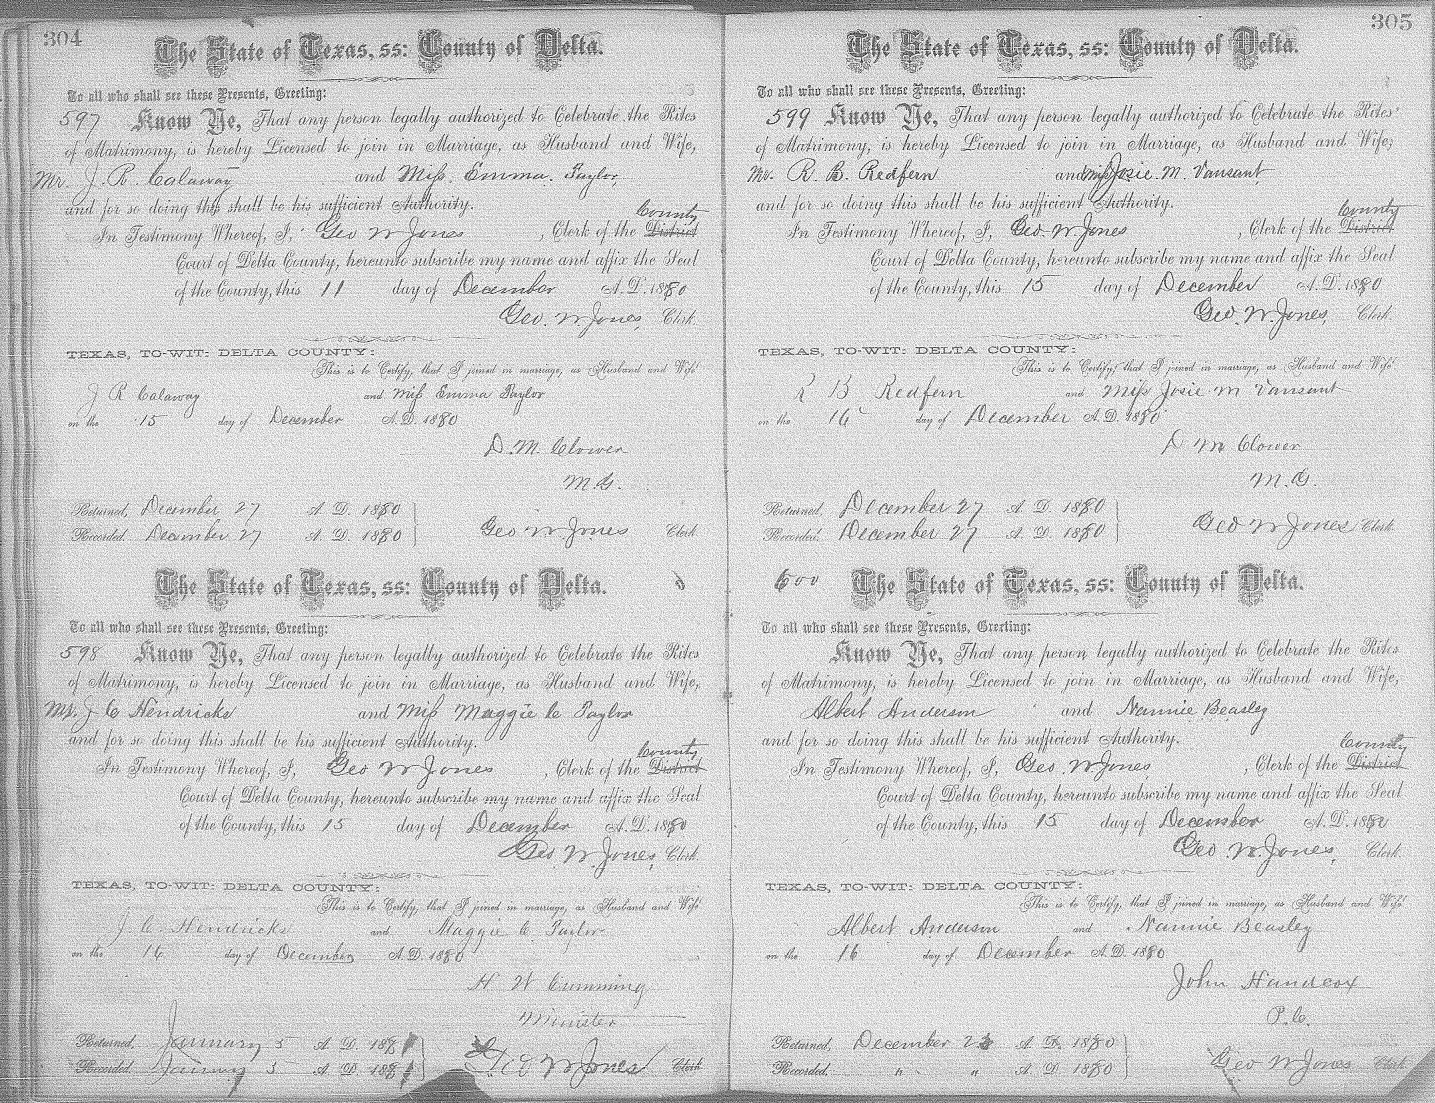 304
The State of Texas, ss: County of Delta.
To all who shall see these Presents, Greeting:
597 Know Ye, That any person legally authorized to Celebrate the Rites
of Matrimony, is hereby Licensed to join in Marriage, as Husband and Wife,
Mr. J. R. Calaway and Miss. Emma. Taylor,
and for so doing this shall be his sufficient Authority.
County
In Testimony Whereof, I, Geo W Jones, Clerk of the District
Court of Delta County, hereunto subscribe my name and affix the Seal
of the County, this 11 day of December A.D. 1880
Geo. W Jones, Clerk.
TEXAS, TO-WIT: DELTA COUNTY:
This is to Certify, that I joined in marriage, as Husband and Wife
J R Calaway and Miss Emma Taylor
on the 15 day of December A.D. 1880
D. M. Clower
M.G.
Returned, December 27 A. D. 1880
Recorded. December 27 A. D. 1880
Geo W Jones Clerk.
The State of Texas, ss: County of Delta.
To all who shall see these Presents, Greeting:
598 Know Ye, That any person legally authorized to Celebrate the Rites
of Matrimony, is hereby Licensed to join in Marriage, as Husband and Wife,
Mr. J C Hendricks and Miss Maggie C Taylor
and for so doing this shall be his sufficient Authority.
County
In Testimony Whereof, I, Geo W Jones, Clerk of the District
Court of Delta County, hereunto subscribe my name and affix the Seal
of the County, this 15 day of December A.D. 1880
Geo W Jones, Clerk.
TEXAS, TO-WIT: DELTA COUNTY:
This is to Certify, that I joined in marriage, as Husband and Wife
J. C. Hendricks and Maggie C Taylor
on the 16 day of December A.D. 1880
H W Cumming
Minister
Returned, January 5 A. D. 1881
Recorded January 5 A. D. 1881
Geo W Jones Clerk
305
The State of Texas, ss: County of Delta.
To all who shall see these Presents, Greeting:
599 Know Ye, That any person legally authorized to Celebrate the Rites
of Matrimony, is hereby Licensed to join in Marriage, as Husband and Wife,
Mr. R. B. Redfern and Miss Josie. M. Vansant
and for so doing this shall be his sufficient Authority.
County
In Testimony Whereof, I, Geo. W. Jones, Clerk of the District
Court of Delta County, hereunto subscribe my name and affix the Seal
of the County, this 15 day of December A.D. 1880
Geo. W. Jones, Clerk.
TEXAS, TO-WIT: DELTA COUNTY:
This is to Certify, that I joined in marriage, as Husband and Wife
R B Redfern and Miss Josie M Vansant
on the 16 day of December A.D. 1880
D M Clower
M.G.
Returned, December 27 A. D. 1880
Recorded. December 27 A. D. 1880
Geo W Jones Clerk
600 The State of Texas, ss: County of Delta.
To all who shall see these Presents, Greeting:
Know Ye, That any person legally authorized to Celebrate the Rites
of Matrimony, is hereby Licensed to join in Marriage, as Husband and Wife,
Albert Anderson and Nannie Beasley
and for so doing this shall be his sufficient Authority.
County
In Testimony Whereof, I, Geo. W Jones, Clerk of the District
Court of Delta County, hereunto subscribe my name and affix the Seal
of the County, this 15 day of December A.D. 1880
Geo W. Jones, Clerk.
TEXAS, TO-WIT: DELTA COUNTY:
This is to Certify, that I joined in marriage, as Husband and Wife
Albert Anderson and Nannie Beasley
on the 16 day of December A.D. 1880
John Handcox
P.C.
Returned, December 23 A. D. 1880
Recorded. " " A. D. 1880
Geo W Jones Clerk